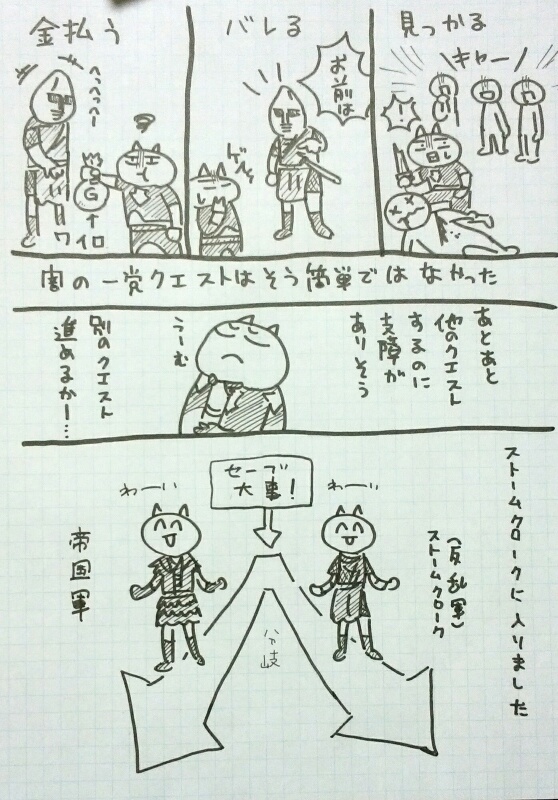 見っかる
キャー
!
バレる
お前は
ゲッ
金払う
へっへっへー
G
↑
ワイロ
闇の一党クエストはそう簡単ではなかった
あとあと
他のクエスト
するのに
支障が
ありそう
うーむ
別のクエスト
進めるかー…
ストームクロークに入りました
セーブ
大事!
わーい
(反乱軍)
ストームクローク
わーい
帝国軍
分岐